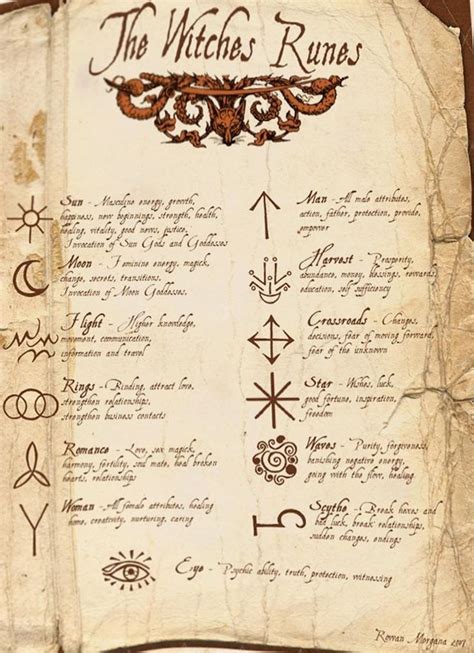 The Witches Runes
Sun - Masculine energy, growth,
happiness, new beginnings, strength, health,
healing, vitality, good news, justice.
Invocation of Sun Gods and Goddesses
Moon - Feminine energy, magick,
change, secrets, transitions.
Invocation of Moon Goddesses.
Flight - Higher knowledge,
movement, communication,
information and travel
Rings - Binding, attract love,
strengthen relationships,
strengthen business contacts
Romance - Love, sex magick,
harmony, fertility, soul mate, heal broken
hearts, relationships
Woman - All female attributes, healing
home, creativity, nurturing, caring
Man - All male attributes,
action, father, protection, provide,
empower
Harvest - Prosperity,
abundance, money, blessings, rewards,
education, self sufficiency
Crossroads - Changes,
decisions, fear of moving forward,
fear of the unknown
Star - Wishes, luck,
good fortune, inspiration,
freedom
Waves - Purity, forgiveness,
banishing negative energy,
going with the flow, healing
Scythe - Break hexes and
bad luck, break relationships,
sudden changes, endings
Eye - Psychic ability, truth, protection, witnessing
Rowan Morgana 2007